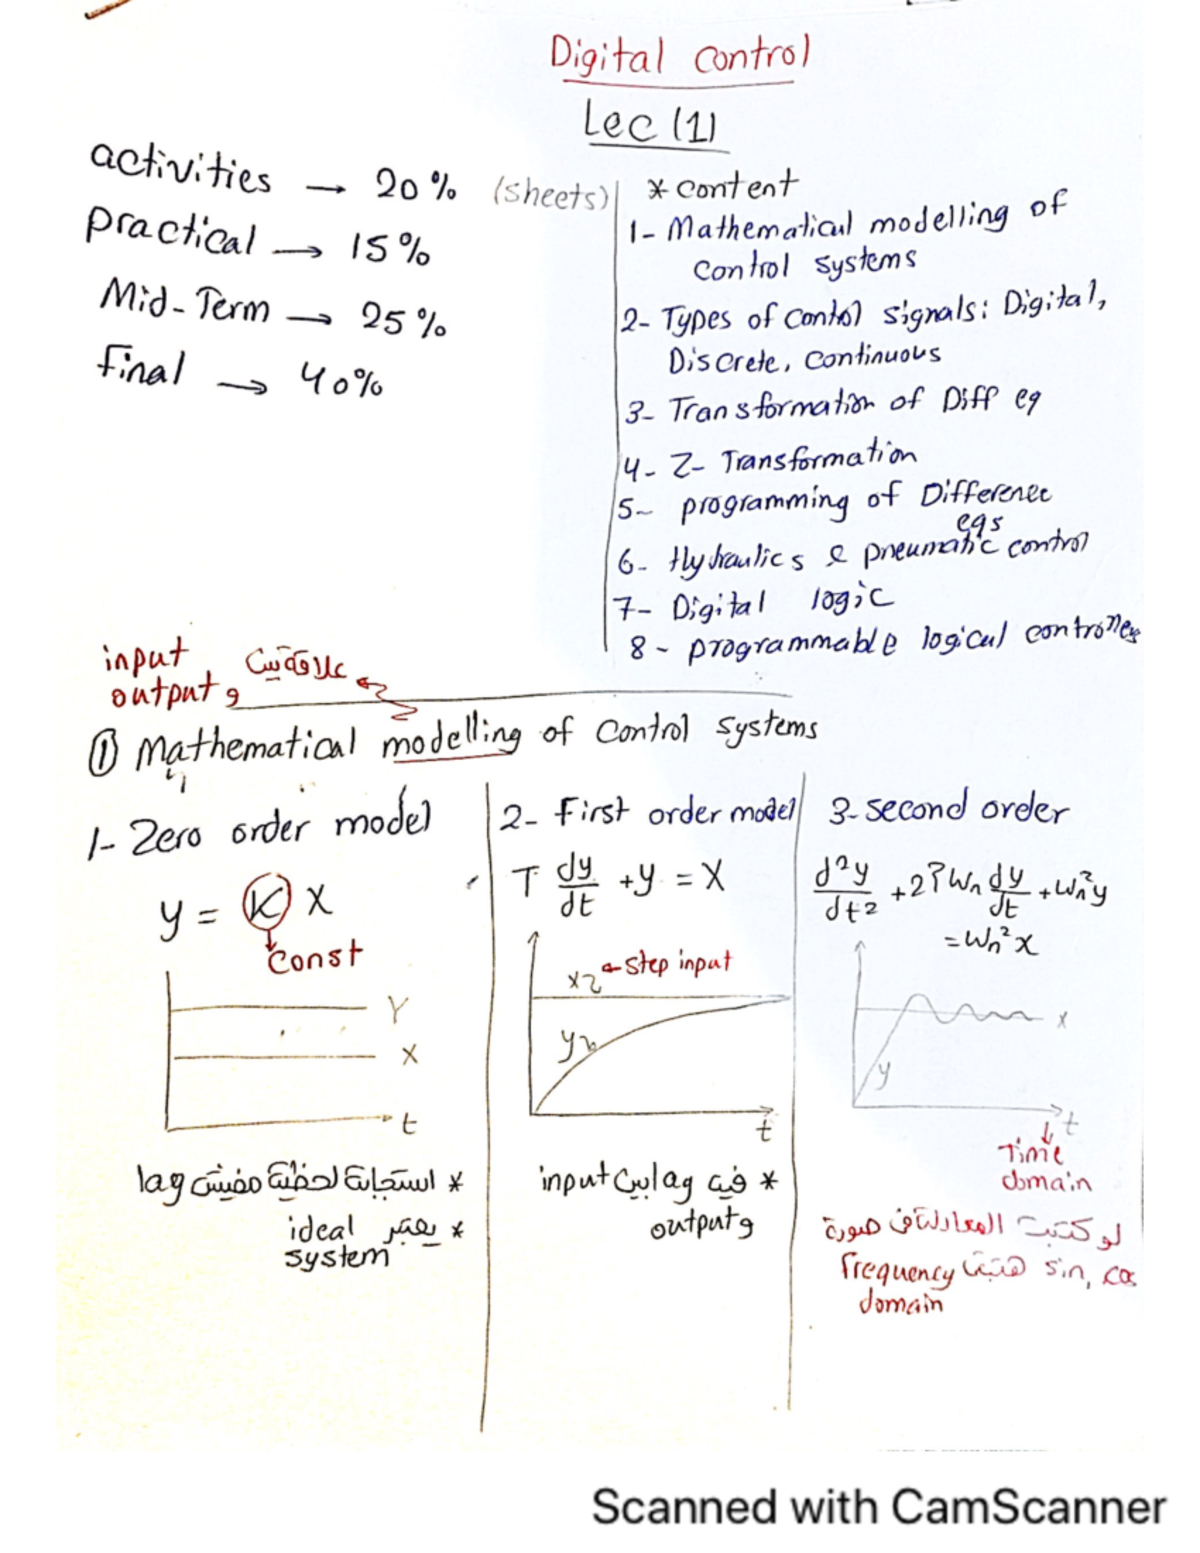 Digital Control
Lec (1)
activities → 20% (sheets)
practical → 15%
Mid-Term → 25%
Final → 40%
* content
1- Mathematical modelling of
Control systems
2- Types of Control signals: Digital,
Discrete, Continuous
3- Transformation of Diff eq
4- Z- Transformation
5- programming of Difference
eqs
6- Hydraulics & pneumatic control
7- Digital logic
8- programmable logical controller
علاقة بين input
و output
① Mathematical modelling of Control Systems
1- Zero order model
y = K X
Const
Y
X
t
* استجابة لحظية مفيش lag
* يعتبر ideal
system
2- First order model
T dy/dt + y = X
X ← step input
y
t
* فيه lag بين input
و output
3- second order
d²y/dt² + 2ζWn dy/dt + Wn²y
= Wn² x
x
y
t
Time
domain
لو كتبت المعادلة في صورة
sin, cos هتبقى frequency
domain
Scanned with CamScanner